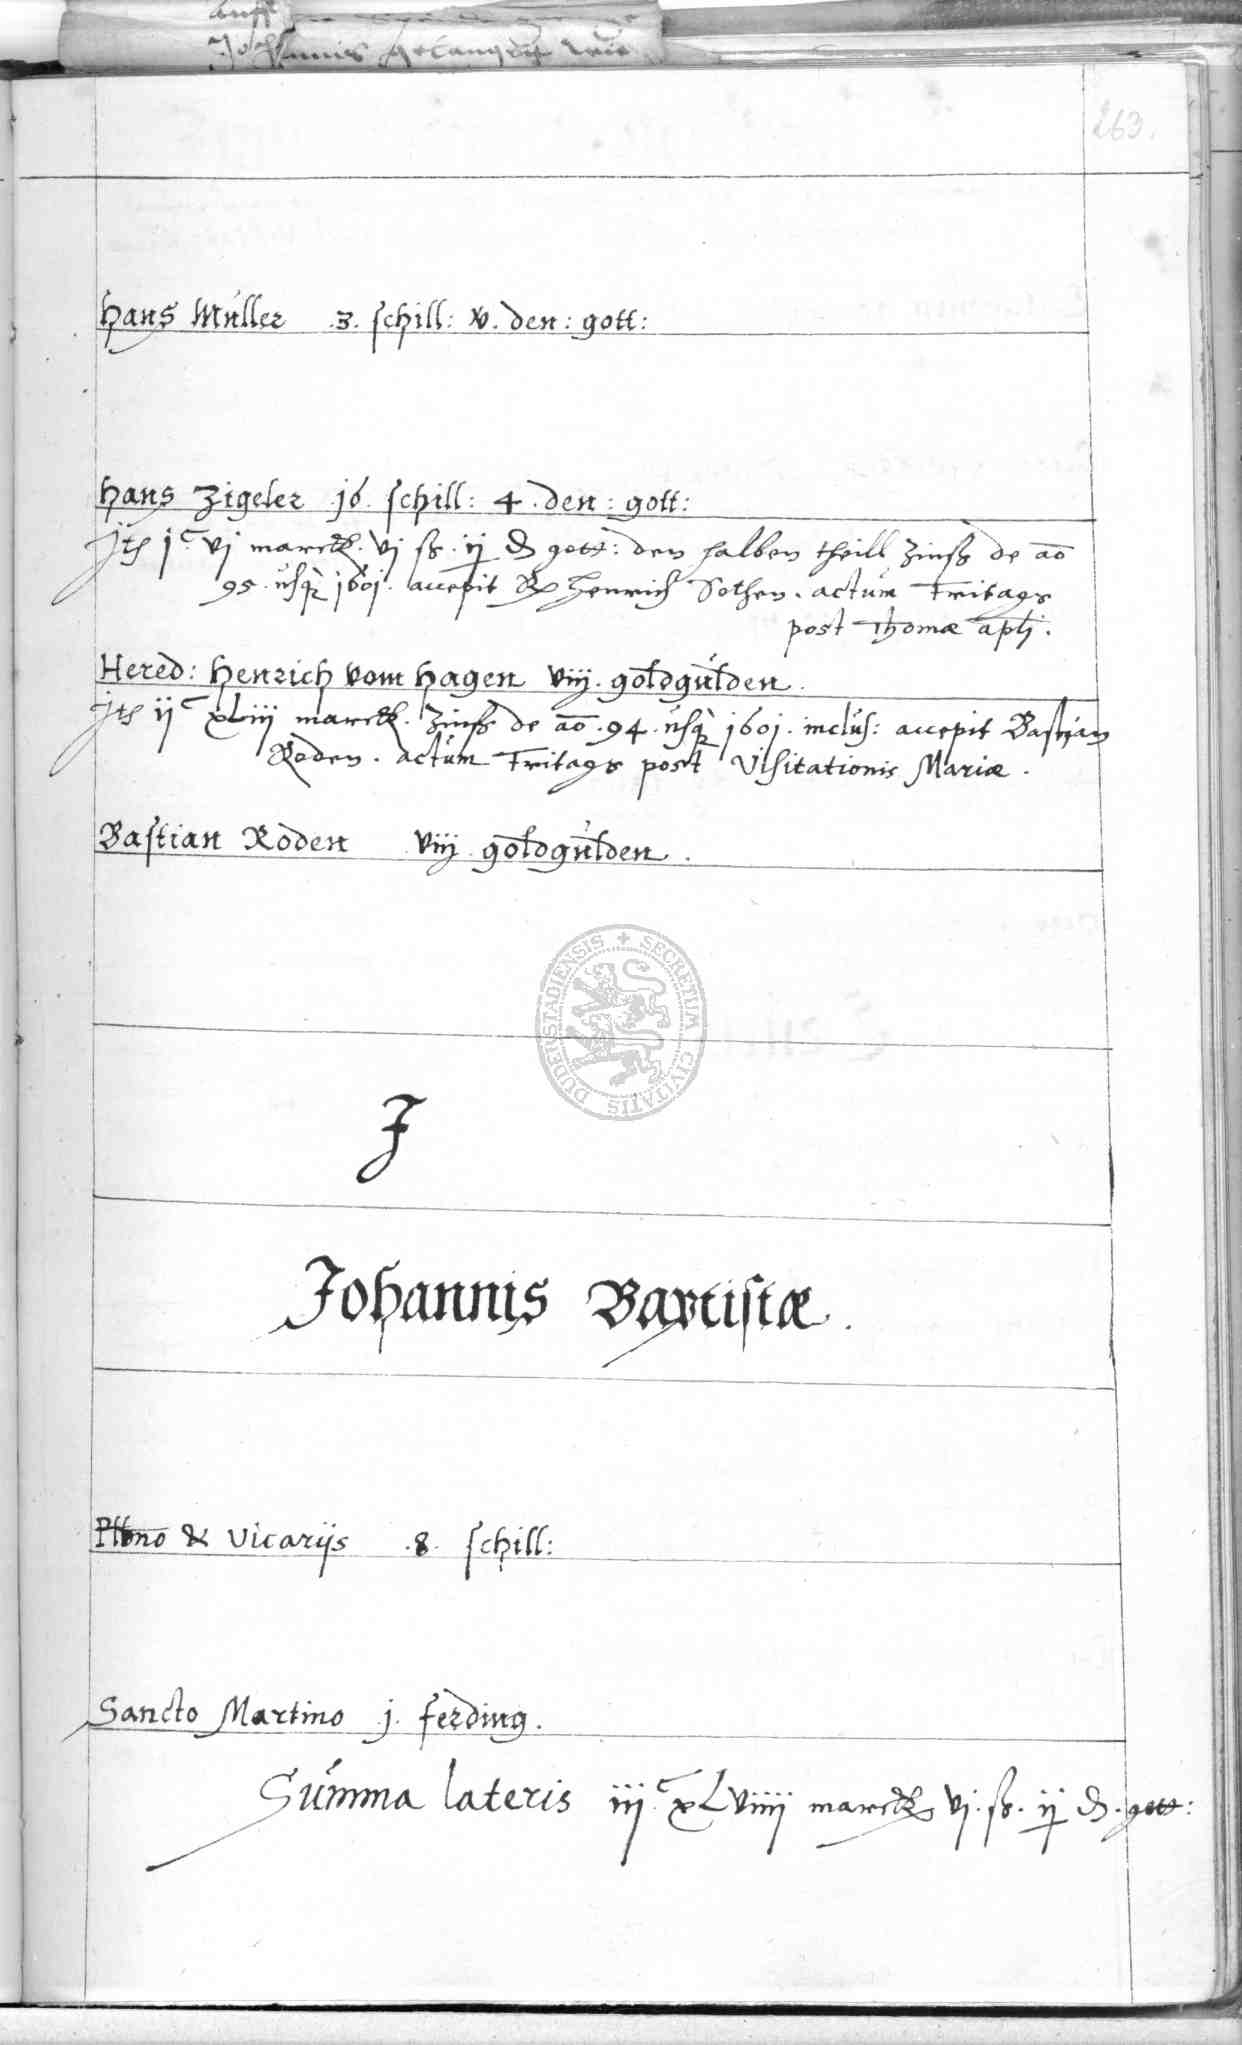 Johannis
263.
Hans Müller .3. schill: v. den: gott:
Hans Zigeler 16. schill: 4. den: gott:
Jtħ j c vj marck. vj ß. ij ₰ gott: den halben theill Zinß de ao
95. usq; 1601. accepit Henrich Sothen. actum Fritags
post Thomæ apli.
Hered: Henrich vom Hagen viij. goldgulden.
Jtħ ij c xLiij marck. Zinß de ao .94. usq; 1601. inclus: accepit Bastian
Roden. actum Fritags post Visitationis Mariæ.
Bastian Roden viij goldgulden.
SECRETUM CIVITATIS DUDERSTADIENSIS
J
Johannis Baptistæ.
& Vicarijs .8. schill:
Sancto Martino j. ferding.
Summa lateris iij c xLviiij marck vj. ß. ij ₰. gott: